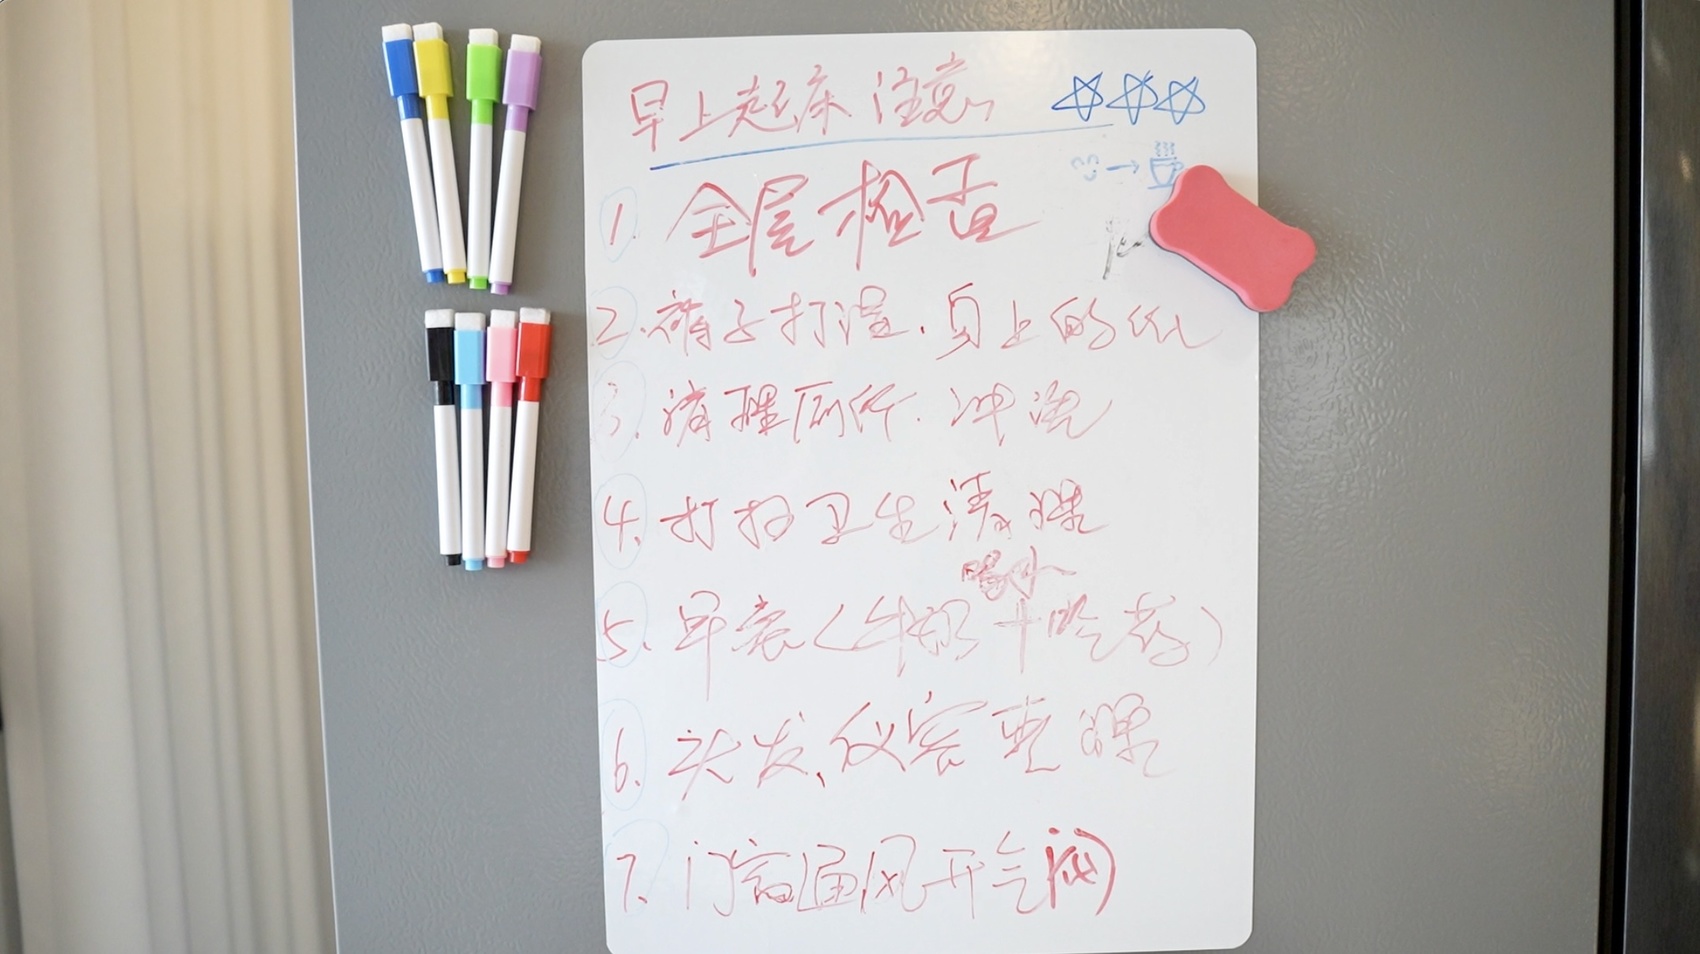 早上起床注意
1. 全屋检查
2. 裤子打湿.身上的
3. 清理厕所.冲洗
4. 打扫卫生清理
喝水
5. 早餐(牛奶+吃药)
6. 头发、仪容整理
7. 门窗通风开气阀